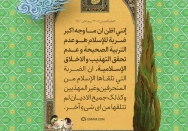 إنني أظن أن ما وجه أكبر
ضربة للإسلام هو عدم
التربية الصحيحة وعدم
تحقق التهذيب والأخلاق
الإسلامية، إن الضربة
التي تلقاها الإسلام من
المنحرفين وغير المهذبين
وكذلك جميع الأديان لم
تتلقها من أي شيء آخر.